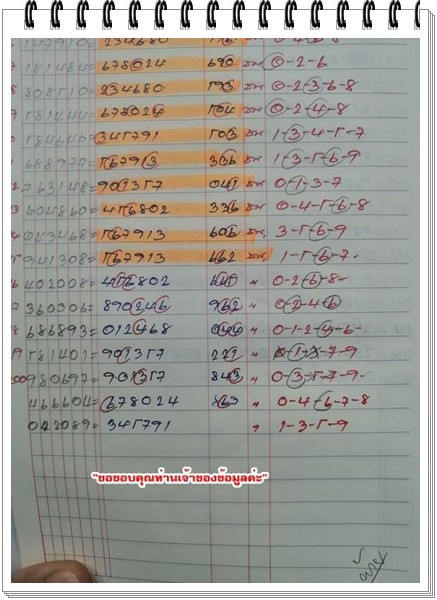 147910= 234680
781484= 678024 690 0-2-6
808510= 234680 593 0-2-3-6-8
781444= 678024 504 0-2-4-8
584646= 345791 503 1-3-4-5-7
688972= 567913 336 1-3-5-6-9
763148= 901357 041 0-1-3-7
604860= 456802 336 0-4-5-6-8
043468= 567913 606 3-5-6-9
941308= 567913 662 1-5-6-7-
402008= 456802 0-2-6-8-
360306= 890246 962 " 0-2-4-6
686893= 012468 044 " 0-1-2-4-6-
581401= 901357 222 "
980697= 901357 843 " 0-3-5-7-9-
466604= 678024 " 0-4-6-7-8
042089= 345791 " 1-3-5-9
"ขอขอบคุณท่านเจ้าของข้อมูลค่ะ"